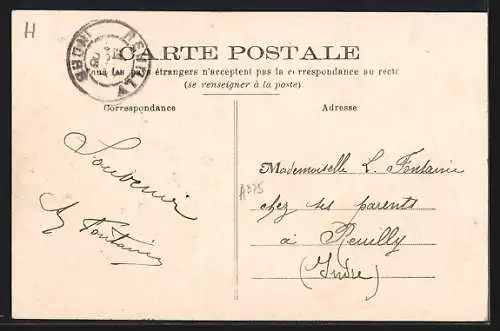 H
CARTE POSTALE
Tous les pays étrangers n'acceptent pas la correspondance au recto
(se renseigner à la poste)
Correspondance
Adresse
Souvenir
Fontaine
A375
Mademoiselle L. Fontaine
chez ses parents
à Reuilly
(Indre)